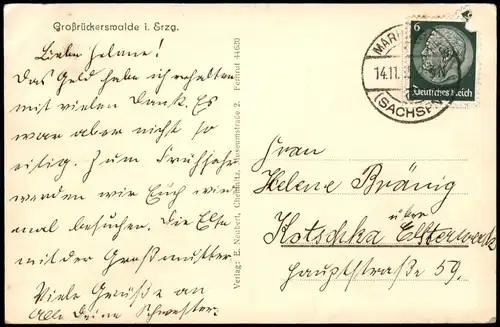 Großrückerswalde i. Erzg.
Liebe Helene!
Das Geld habe ich erhalten
mit vielen Dank. Es
war aber nicht so
eilig. Zum Frühjahr
werden wir Euch wied
mal besuchen. Die Else
mit der Großmutter.
Viele Grüße an
Alle Deine Schwester.
Verlag: E. Neubert, Chemnitz, Museumstraße 2. Fernruf 44620
14.11.
(SACHSEN)
6
Deutsches Reich
Frau
Helene Bränig
Kotschka über Elsterwerda
Hauptstraße 59.